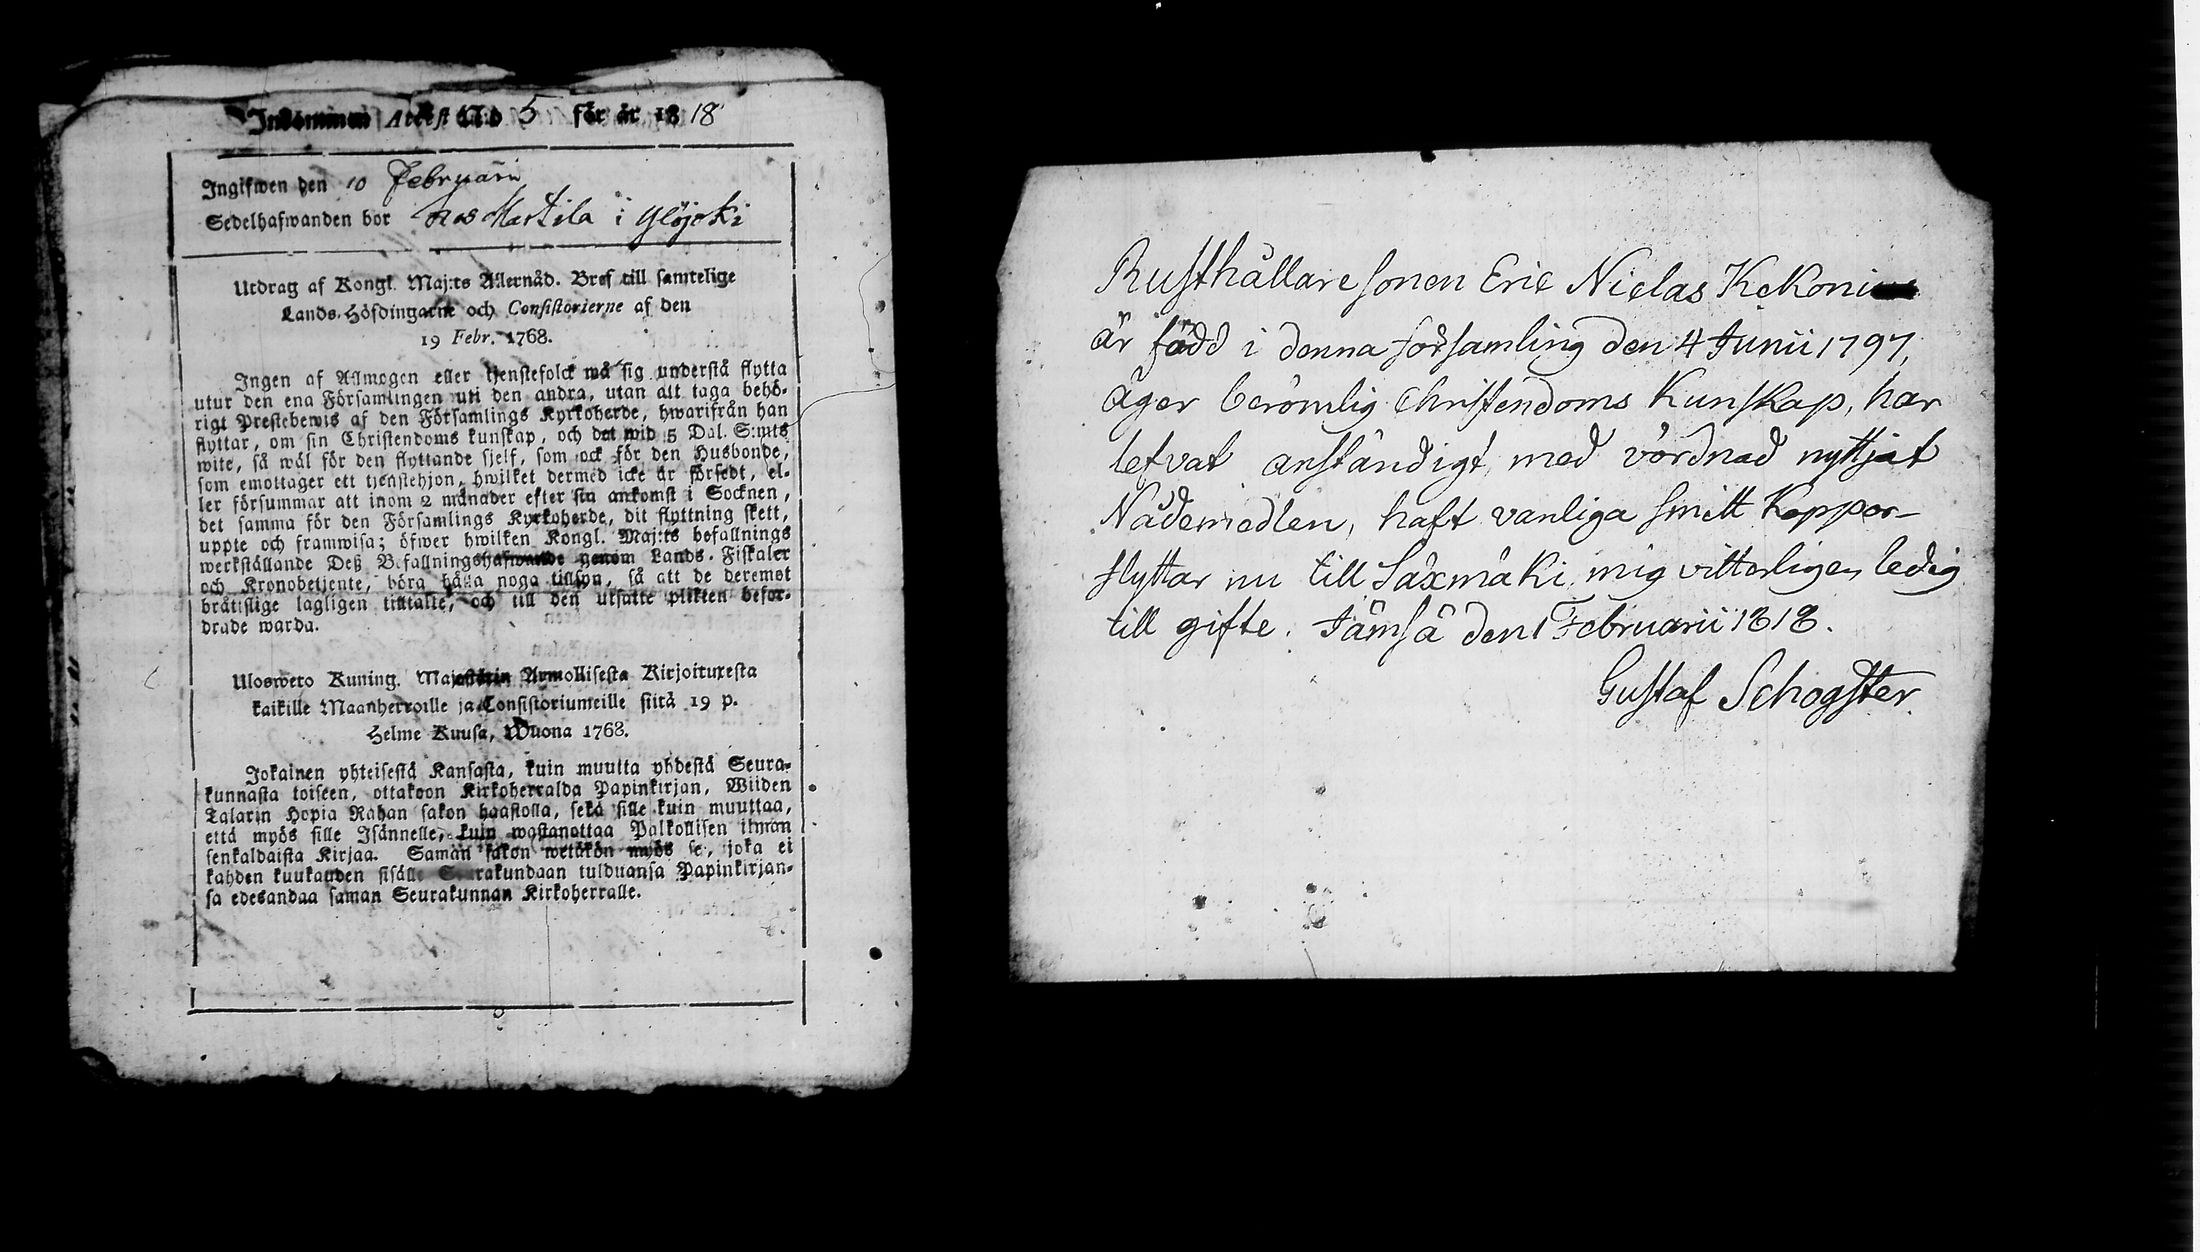 Inkommen Attest N:o 5 för år 1818
Ingifwen den 10 Februarii
Sedelhafwanden bor hos Martila i
Utdrag af Kongl. Maj:ts Allernåd. Bref till samtelige
Lands-Höfdingarne och Consistorierne af den
19 Febr. 1768.
Ingen af Allmogen eller tjenstefolck må sig understå flytta
utur den ena Församlingen uti den andra, utan att taga behö-
rigt Prestebewis af den Församlings Kyrkoherde, hwarifrån han
flyttar, om sin Christendoms kunskap, och det wid 5 Dal. S:mts
wite, så wäl för den flyttande sjelf, som ock för den Husbonde,
som emottager ett tjenstehjon, hwilket dermed icke är försedt, el-
ler försummar att inom 2 månader efter sin ankomst i Socknen,
det samma för den Församlings Kyrkoherde, dit flyttning skett,
uppte och framwisa; öfwer hwilken Kongl. Maj:ts befallnings
werkställande Deß Befallningshafwande genom Lands-Fiskaler
och Kronobetjente, böra hålla noga tillsyn, så att de deremot
bråtislige lagligen tilltalte, och till den utsatte plikten befor-
drade warda.
Ulosweto Kuning. Majestetin Armollisesta Kirjoituxesta
kaikille Maanherroille ja Consistoriumeille siitä 19 p.
Helme Kuusa, Wuona 1768.
Jokainen yhteisestä Kansasta, kuin muutta yhdestä Seura-
kunnasta toiseen, ottakoon Kirkoherralda Papinkirjan, Wiiden
Talarin Hopia Rahan sakon haastolla, sekä sille kuin muuttaa,
että myös sille Isännelle, kuin wastanottaa Palkollisen ilman
senkaldaista Kirjaa. Saman sakon wetäkön myös se, joka ei
kahden kuukauden sisälle Seurakundaan tulduansa Papinkirjan-
sa edesandaa saman Seurakunnan Kirkoherralle.
Rusthållare sonen Eric Niclas Kekoni
är född i denna församling den 4 Junii 1797,
äger berömlig Christendoms Kunskap, har
lefvat anständigt, med vördnad nyttjat
Nådemedlen, haft vanliga smitt Koppor-
flyttar nu till Säxmäki, mig vitterligen ledig
till gifte. Jämsä den 1 Februarii 1818.
Gustaf Schogster